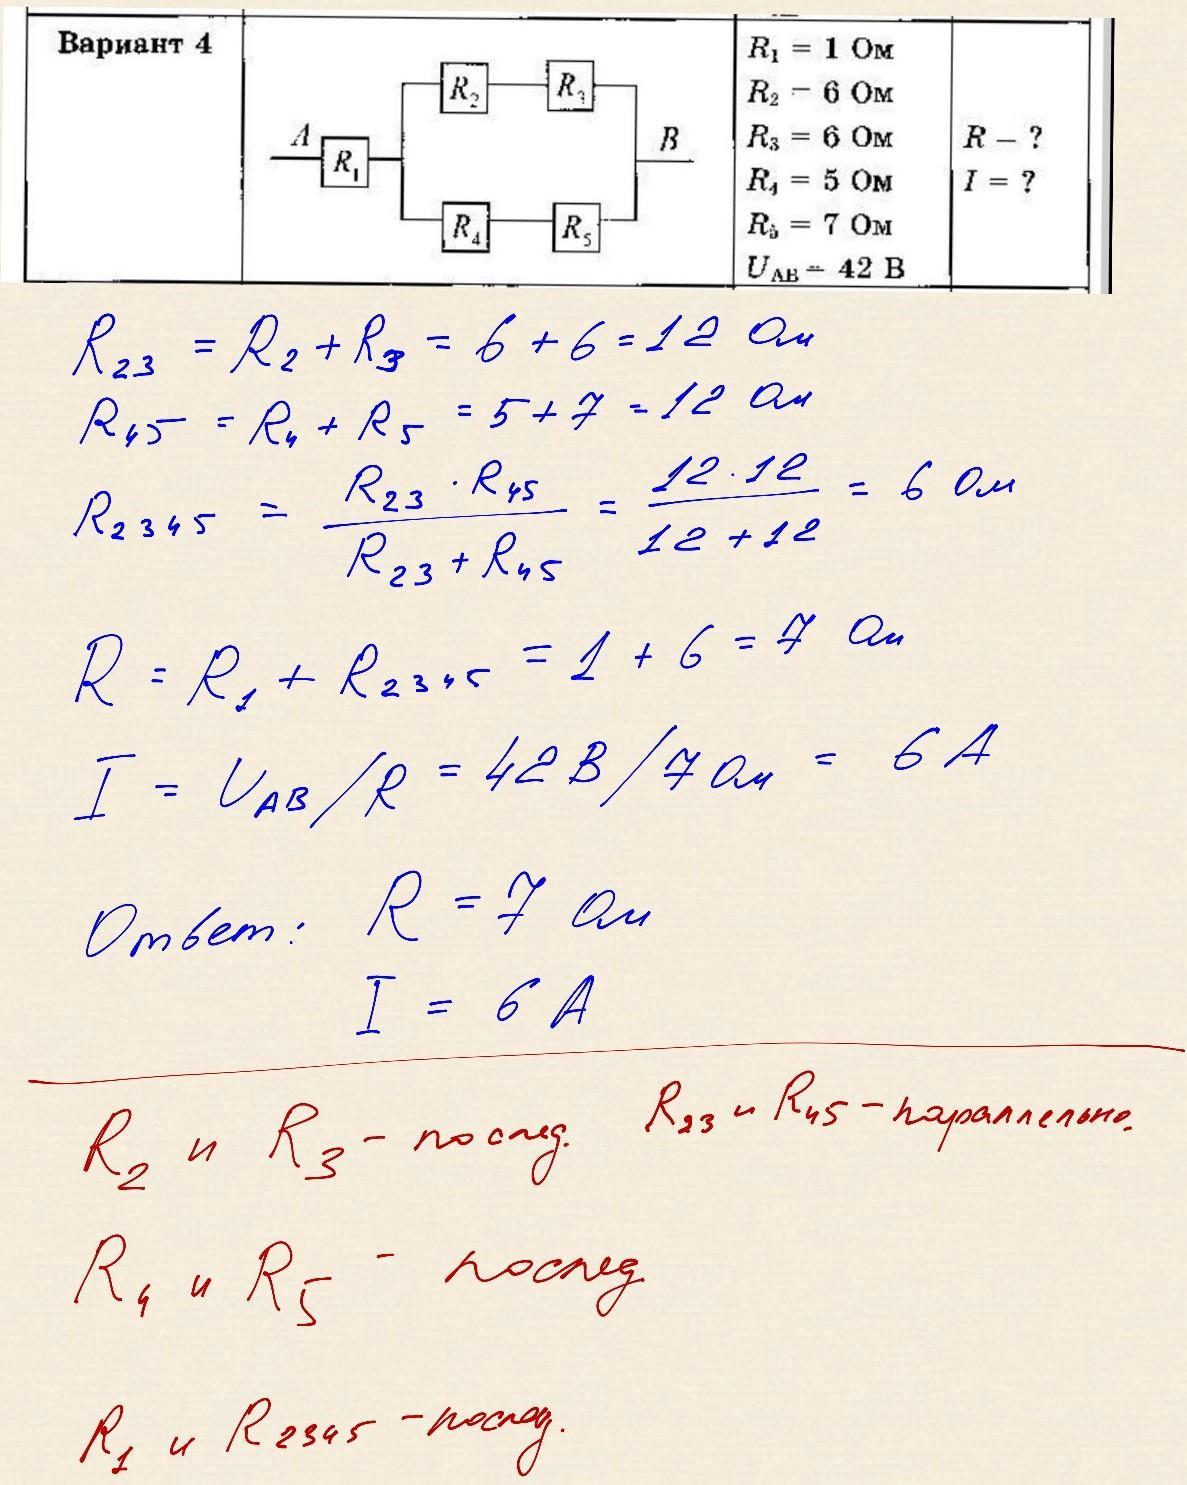 Вариант 4
A
R₁
R₂
R₃
R₄
R₅
B
R₁ = 1 Ом
R₂ – 6 Ом
R₃ = 6 Ом
R₄ = 5 Ом
R₅ = 7 Ом
U_AB – 42 В
R – ?
I = ?
R₂₃ = R₂ + R₃ = 6 + 6 = 12 Ом
R₄₅ = R₄ + R₅ = 5 + 7 = 12 Ом
R₂₃₄₅ = (R₂₃ · R₄₅) / (R₂₃ + R₄₅) = (12 · 12) / (12 + 12) = 6 Ом
R = R₁ + R₂₃₄₅ = 1 + 6 = 7 Ом
I = U_AB / R = 42 В / 7 Ом = 6 А
Ответ: R = 7 Ом
I = 6 А
R₂ и R₃ – послед. R₂₃ и R₄₅ – параллельно.
R₄ и R₅ – послед.
R₁ и R₂₃₄₅ – послед.